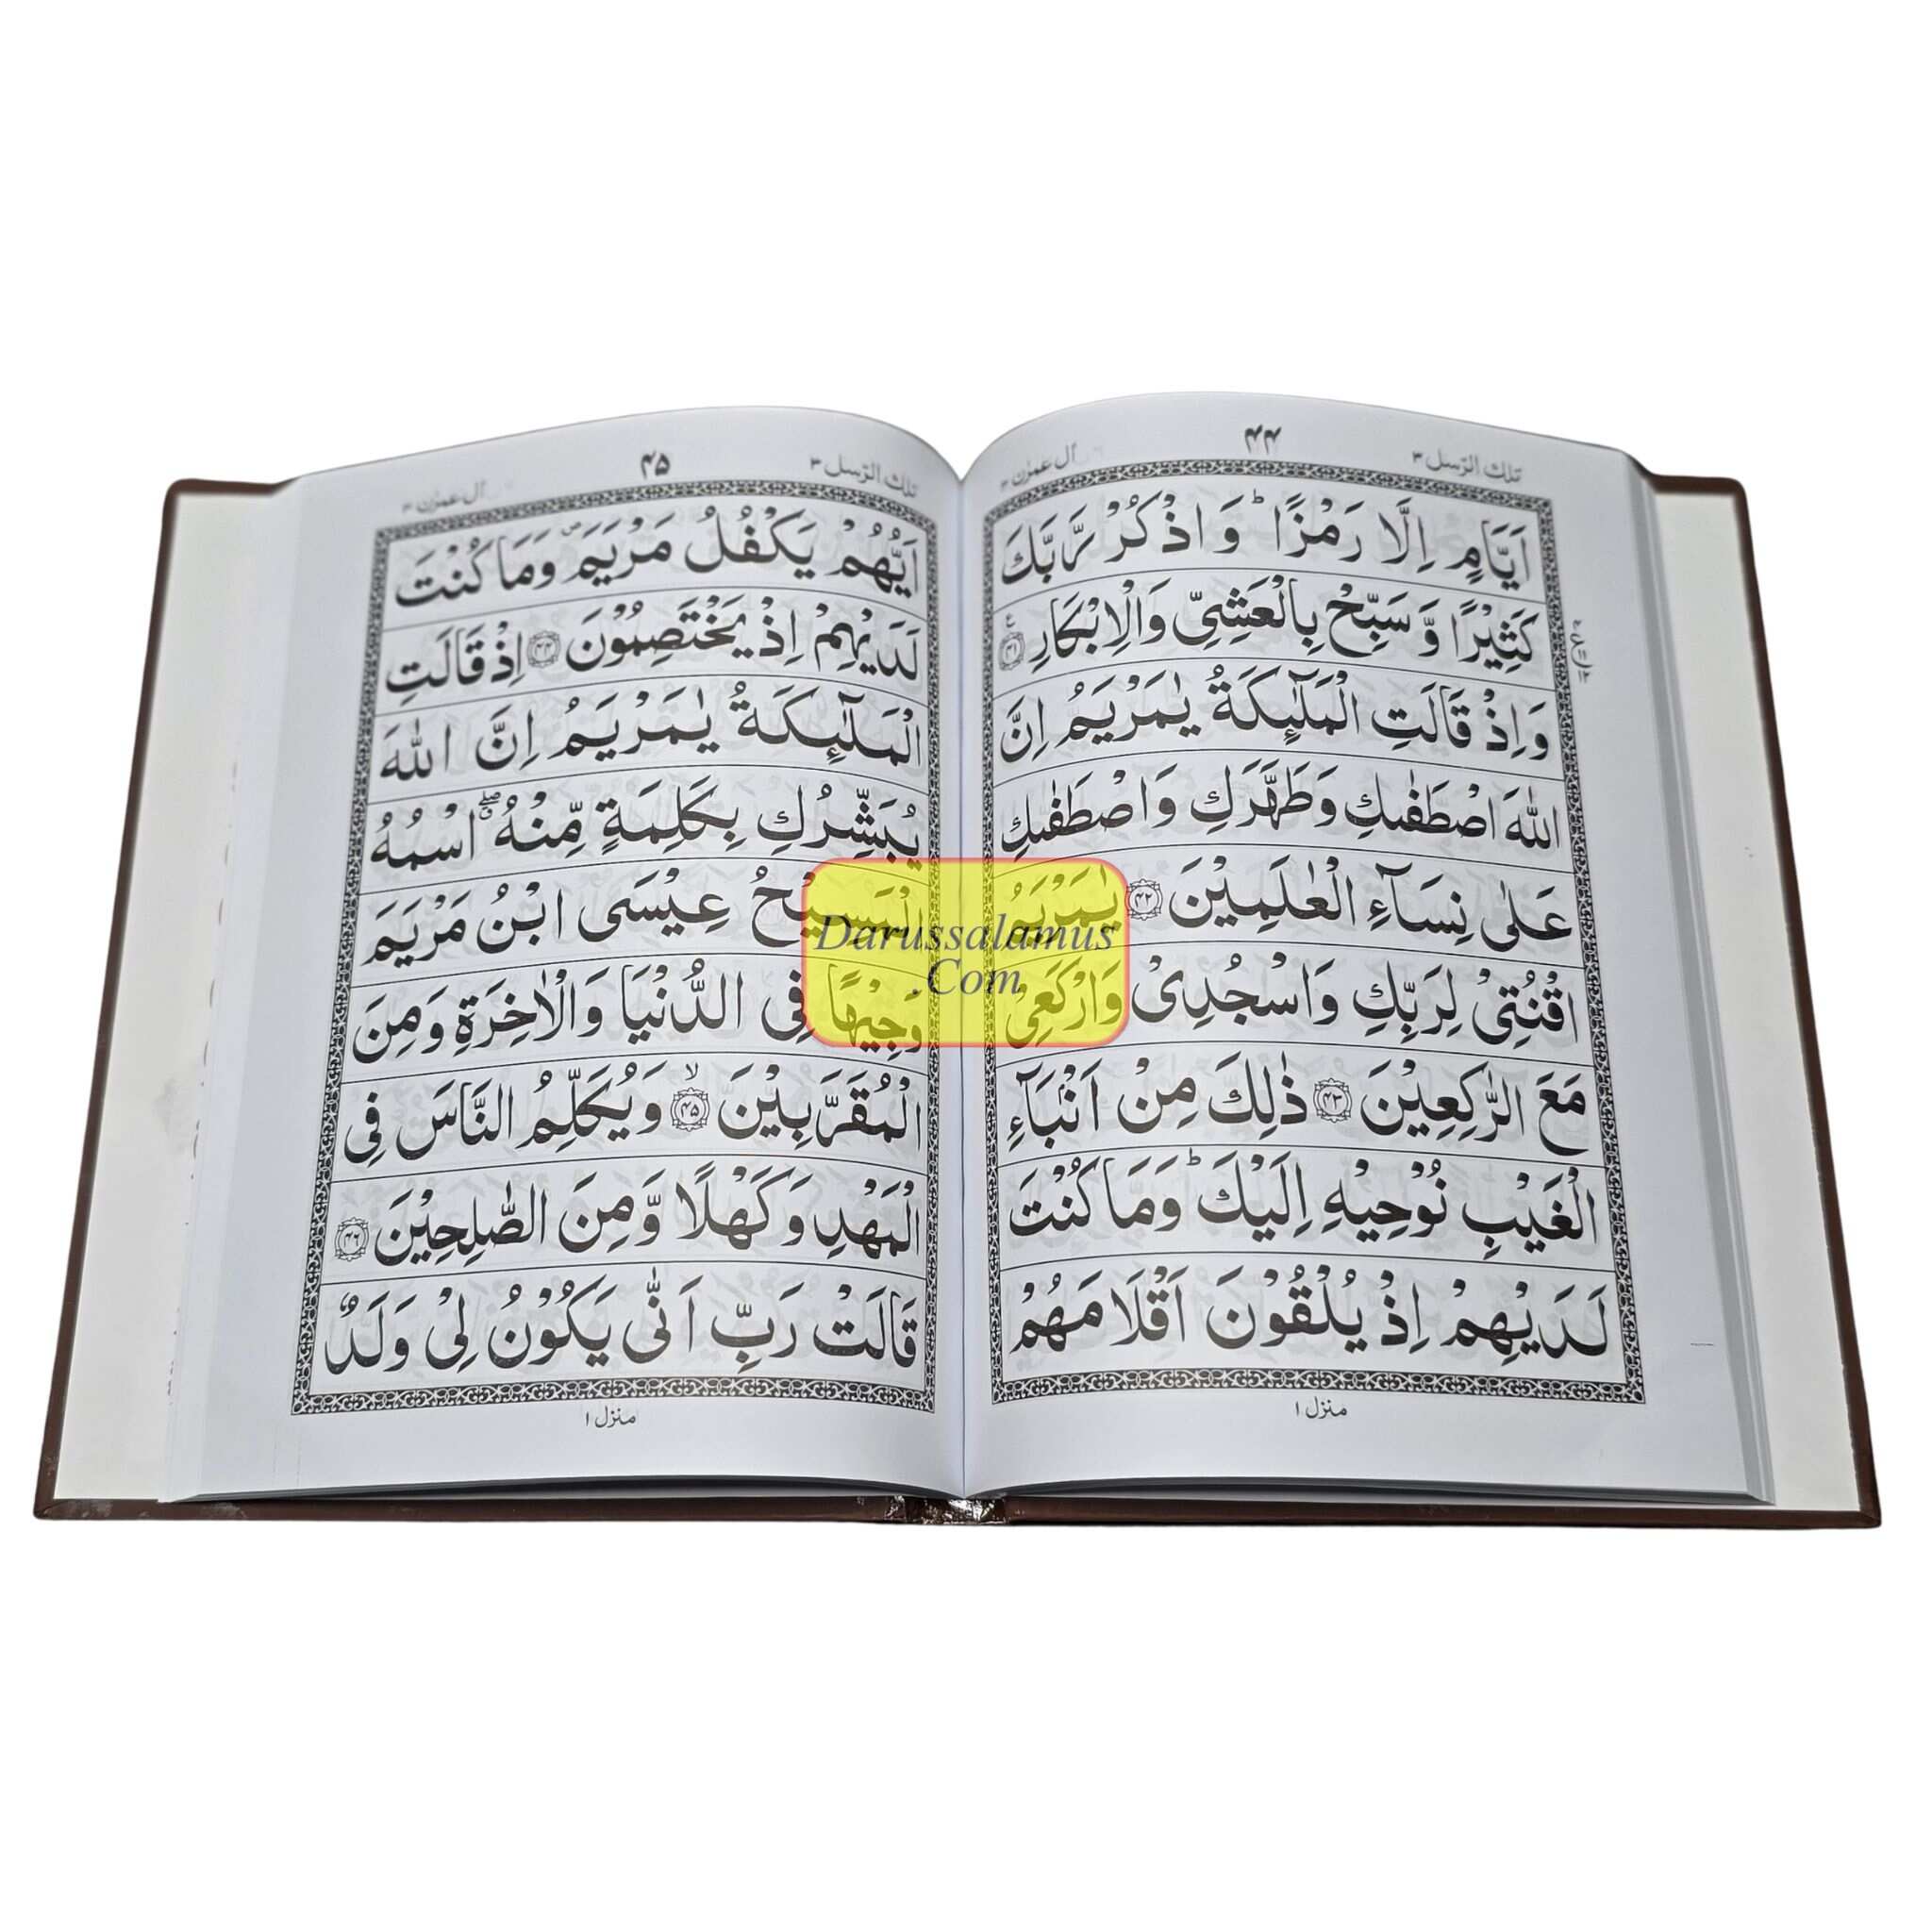 تلك الرسل ٣
۴۴
اٰل عمرٰن ٣
اَيَّامٍ اِلَّا رَمْزًا ؕ وَاذْكُرْ رَّبَّكَ
كَثِيْرًا وَّ سَبِّحْ بِالْعَشِيِّ وَالْاِبْكَارِ ۴۱
وَاِذْ قَالَتِ الْمَلٰٓئِكَةُ يٰمَرْيَمُ اِنَّ
اللّٰهَ اصْطَفٰىكِ وَطَهَّرَكِ وَاصْطَفٰىكِ
عَلٰى نِسَآءِ الْعٰلَمِيْنَ ۴۲ يٰمَرْيَمُ
اقْنُتِيْ لِرَبِّكِ وَاسْجُدِيْ وَارْكَعِيْ
مَعَ الرّٰكِعِيْنَ ۴۳ ذٰلِكَ مِنْ اَنْۢبَآءِ
الْغَيْبِ نُوْحِيْهِ اِلَيْكَ ؕ وَمَا كُنْتَ
لَدَيْهِمْ اِذْ يُلْقُوْنَ اَقْلَامَهُمْ
منزل ١
تلك الرسل ٣
۴۵
اٰل عمرٰن ٣
اَيُّهُمْ يَكْفُلُ مَرْيَمَ ۪ وَمَا كُنْتَ
لَدَيْهِمْ اِذْ يَخْتَصِمُوْنَ ۴۴ اِذْ قَالَتِ
الْمَلٰٓئِكَةُ يٰمَرْيَمُ اِنَّ اللّٰهَ
يُبَشِّرُكِ بِكَلِمَةٍ مِّنْهُ ۖ اسْمُهُ
الْمَسِيْحُ عِيْسَى ابْنُ مَرْيَمَ
وَجِيْهًا فِي الدُّنْيَا وَالْاٰخِرَةِ وَمِنَ
الْمُقَرَّبِيْنَ ۙ ۴۵ وَيُكَلِّمُ النَّاسَ فِي
الْمَهْدِ وَكَهْلًا وَّمِنَ الصّٰلِحِيْنَ ۴۶
قَالَتْ رَبِّ اَنّٰى يَكُوْنُ لِيْ وَلَدٌ
منزل ١
Darussalamus
.Com